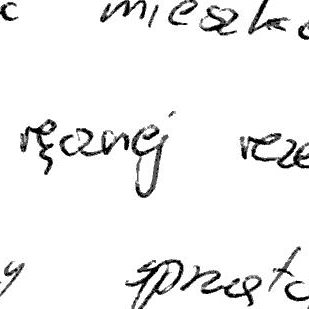 mieszka
ręcznej reze
y sprząta